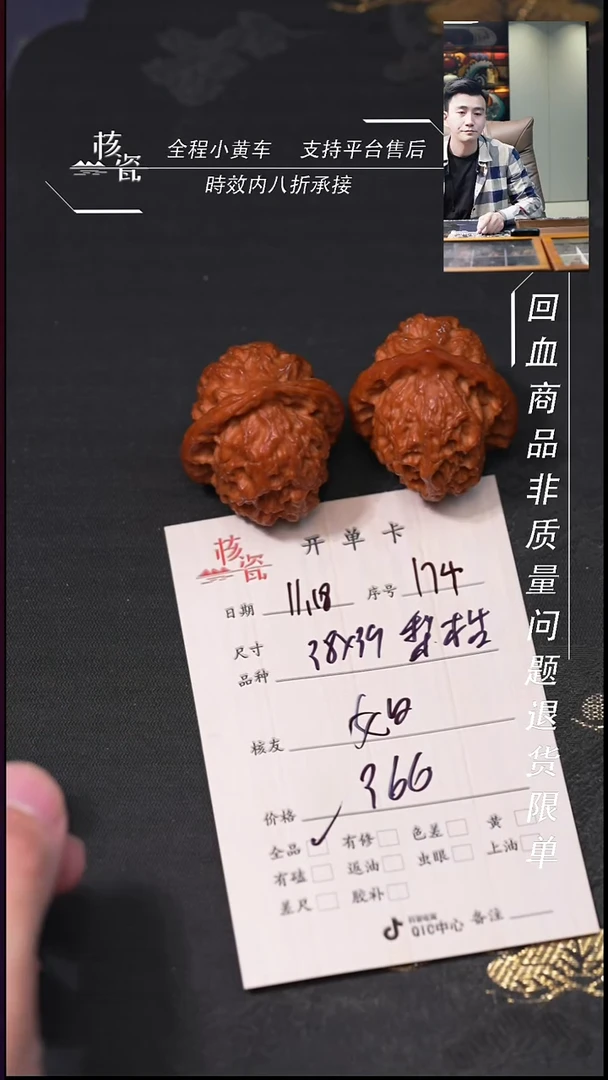 核瓷
全程小黄车 支持平台售后
時效内八折承接
回血商品非质量问题退货限单
核瓷 开单卡
日期 11,18 序号 174
尺寸
品种 38x39
核友
价格 366
全品 ✓ 有修 色差 黄
有磕 返油 虫眼 上油
差尺 胶补
QIC中心 备注